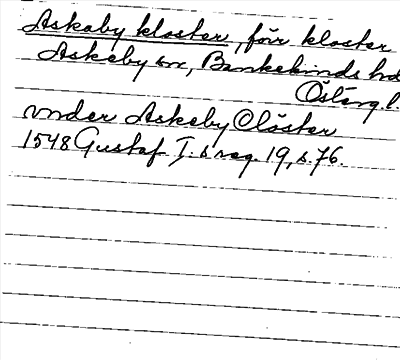 Askeby kloster, förr kloster
Askeby sn, Bankekinds hd
Östերg.l.
vnder Askeby Clöster
1548 Gustaf I:s reg. 19, s. 76.